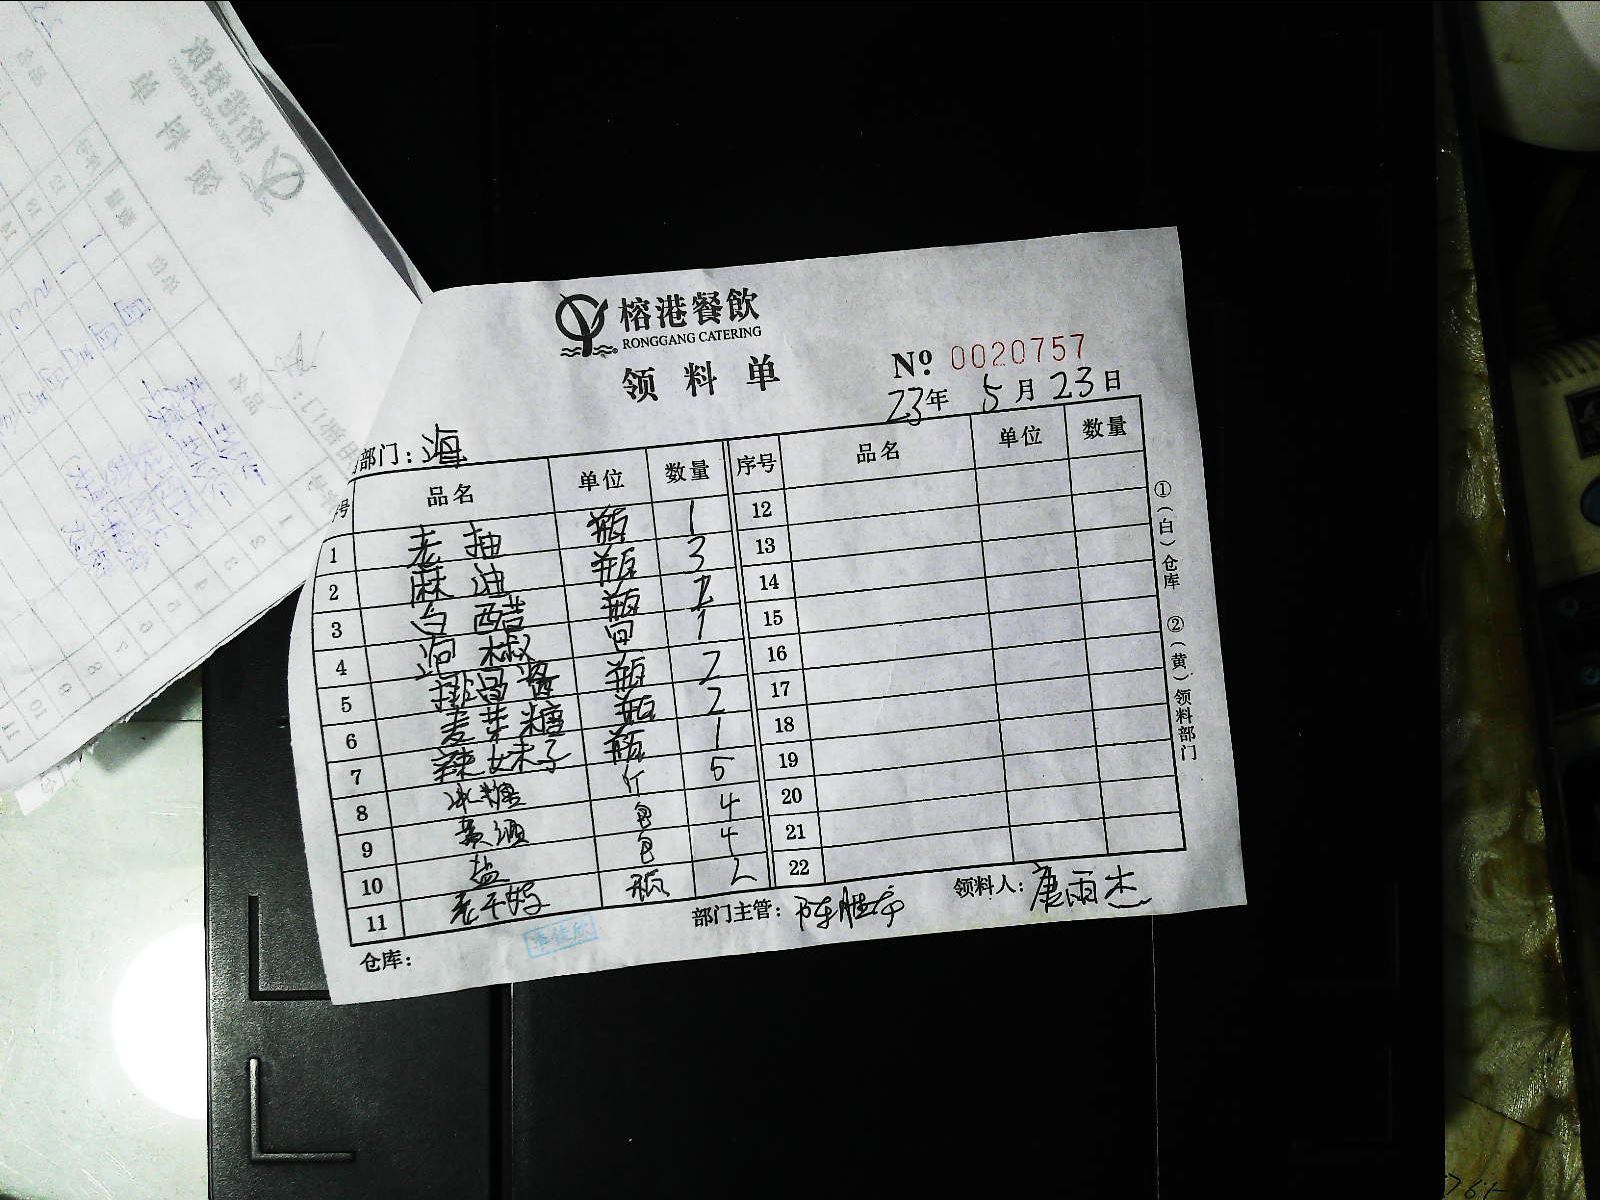 榕港餐飲
RONGGANG CATERING
领料单
Nº 0020757
23年 5月 23日
部门：海
号 品名 单位 数量 序号 品名 单位 数量
1 老抽 瓶 1
2 麻油 瓶 3
3 白醋 瓶 2
4 泡椒 1
5 瓶 2
6 麦芽糖 瓶 2
7 辣妹子 瓶 1
8 冰糖 斤 5
9 黄酒 包 4
10 盐 包 4
11 老干妈 瓶 2
12
13
14
15
16
17
18
19
20
21
22
①（白）仓库 ②（黄）领料部门
仓库： 部门主管：陈胜 领料人：唐雨杰